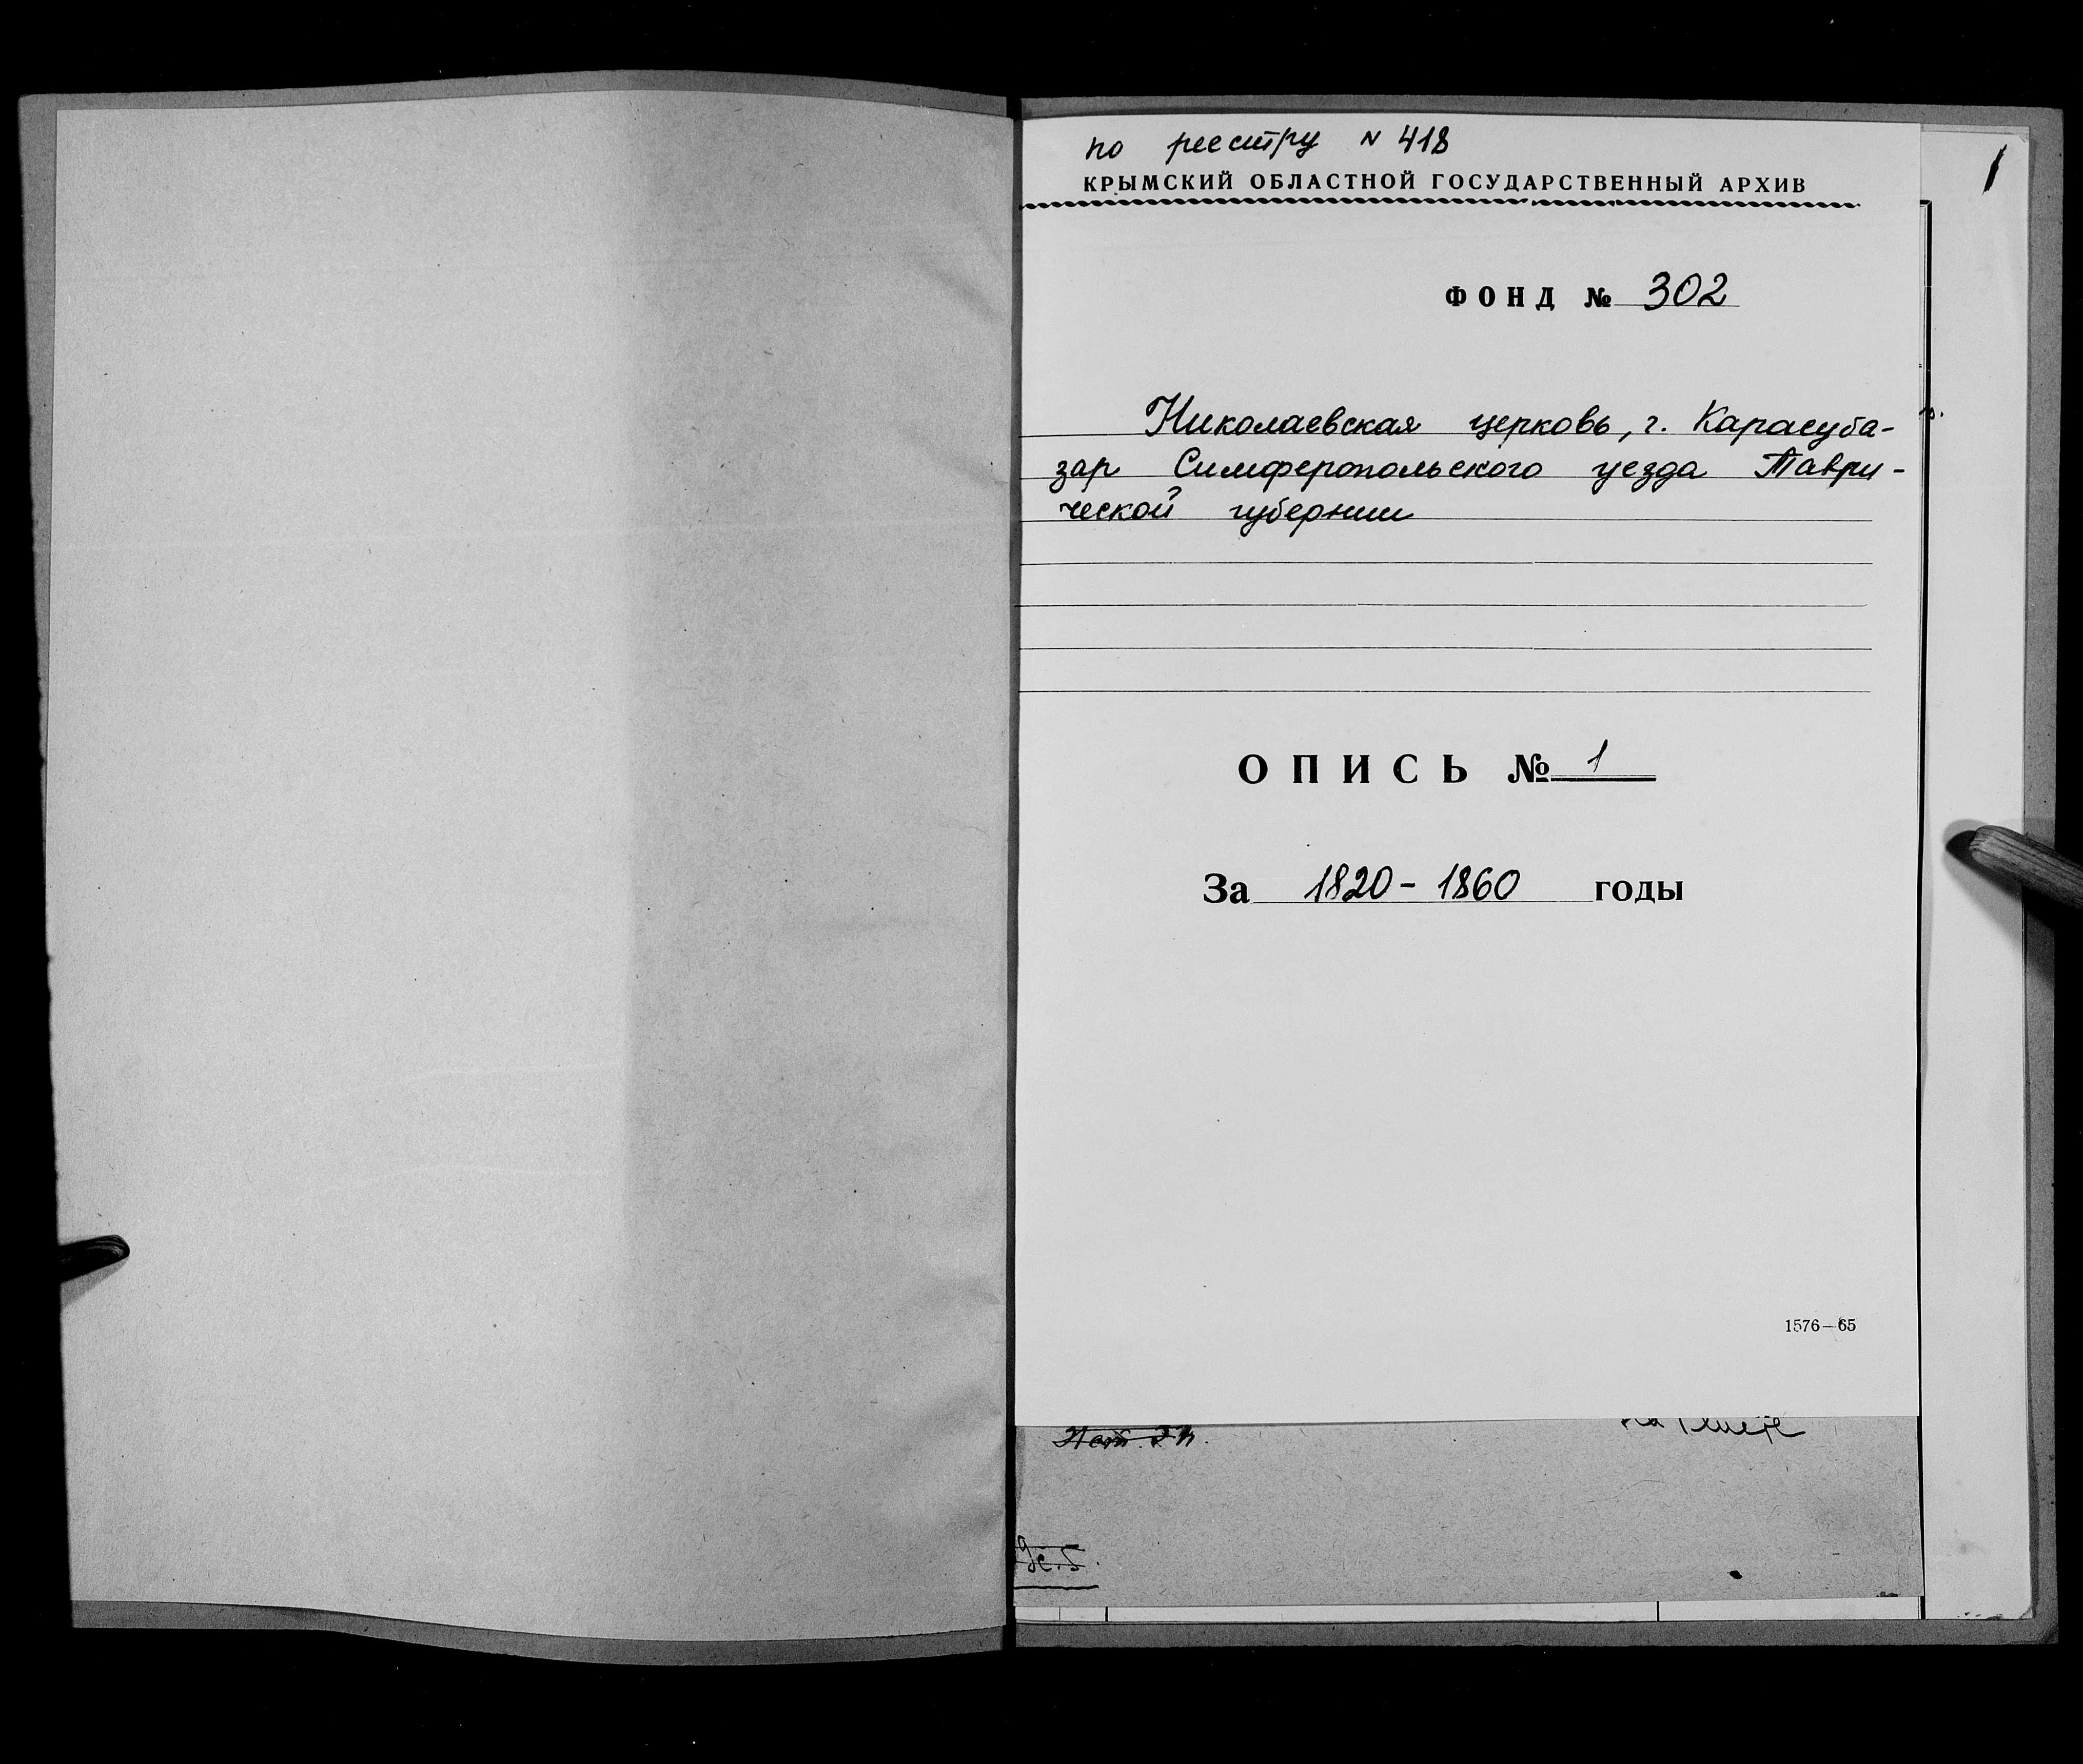 по реестру N 418
1
КРЫМСКИЙ ОБЛАСТНОЙ ГОСУДАРСТВЕННЫЙ АРХИВ
ФОНД № 302
Николаевская церковь, г. Карасуба-
зар Симферопольского уезда Таври-
ческой губернии
ОПИСЬ № 1
За 1820 - 1860 годы
1576—65